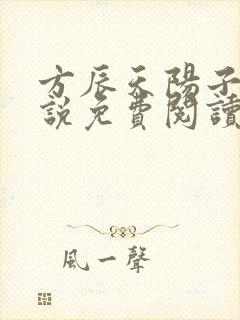 方辰天陽子
說免費閱讀
風一聲